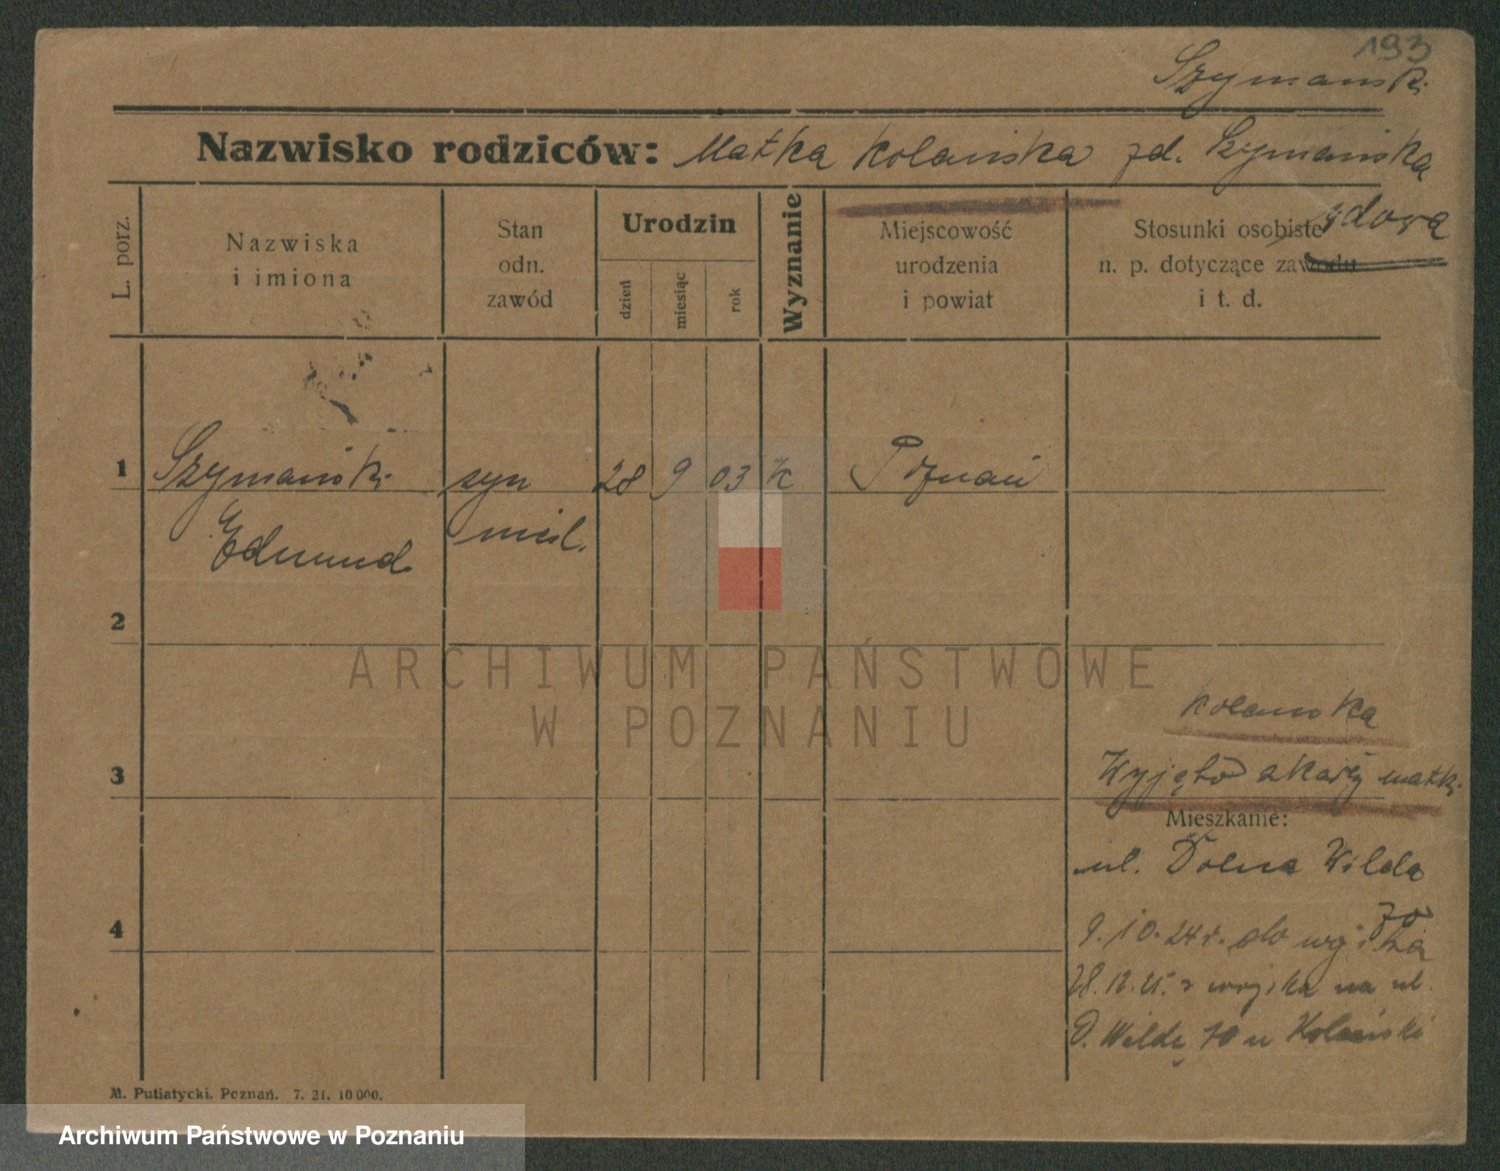 193
Szymański
Nazwisko rodziców: Matka Kolańska zd. Szymańska
zdova
L. porz.
Nazwiska
i imiona
Stan
odn.
zawód
Urodzin
dzień
miesiąc
rok
Wyznanie
Miejscowość
urodzenia
i powiat
Stosunki osobiste
n. p. dotyczące zawodu
i t. d.
1 Szymański syn 28 9 03 K Poznań
Edmund nieśl.
2
ARCHIWUM PAŃSTWOWE
W POZNANIU
Kolańska
3 Wyjęto z karty matki
Mieszkanie:
ul. Dolna Wilda
70
4
9.10.24 r. do wojska
28.12.25. z wojska na ul.
D. Wildę 70 u Kolański
M. Putiatycki. Poznań. 7. 21. 10 000.
Archiwum Państwowe w Poznaniu